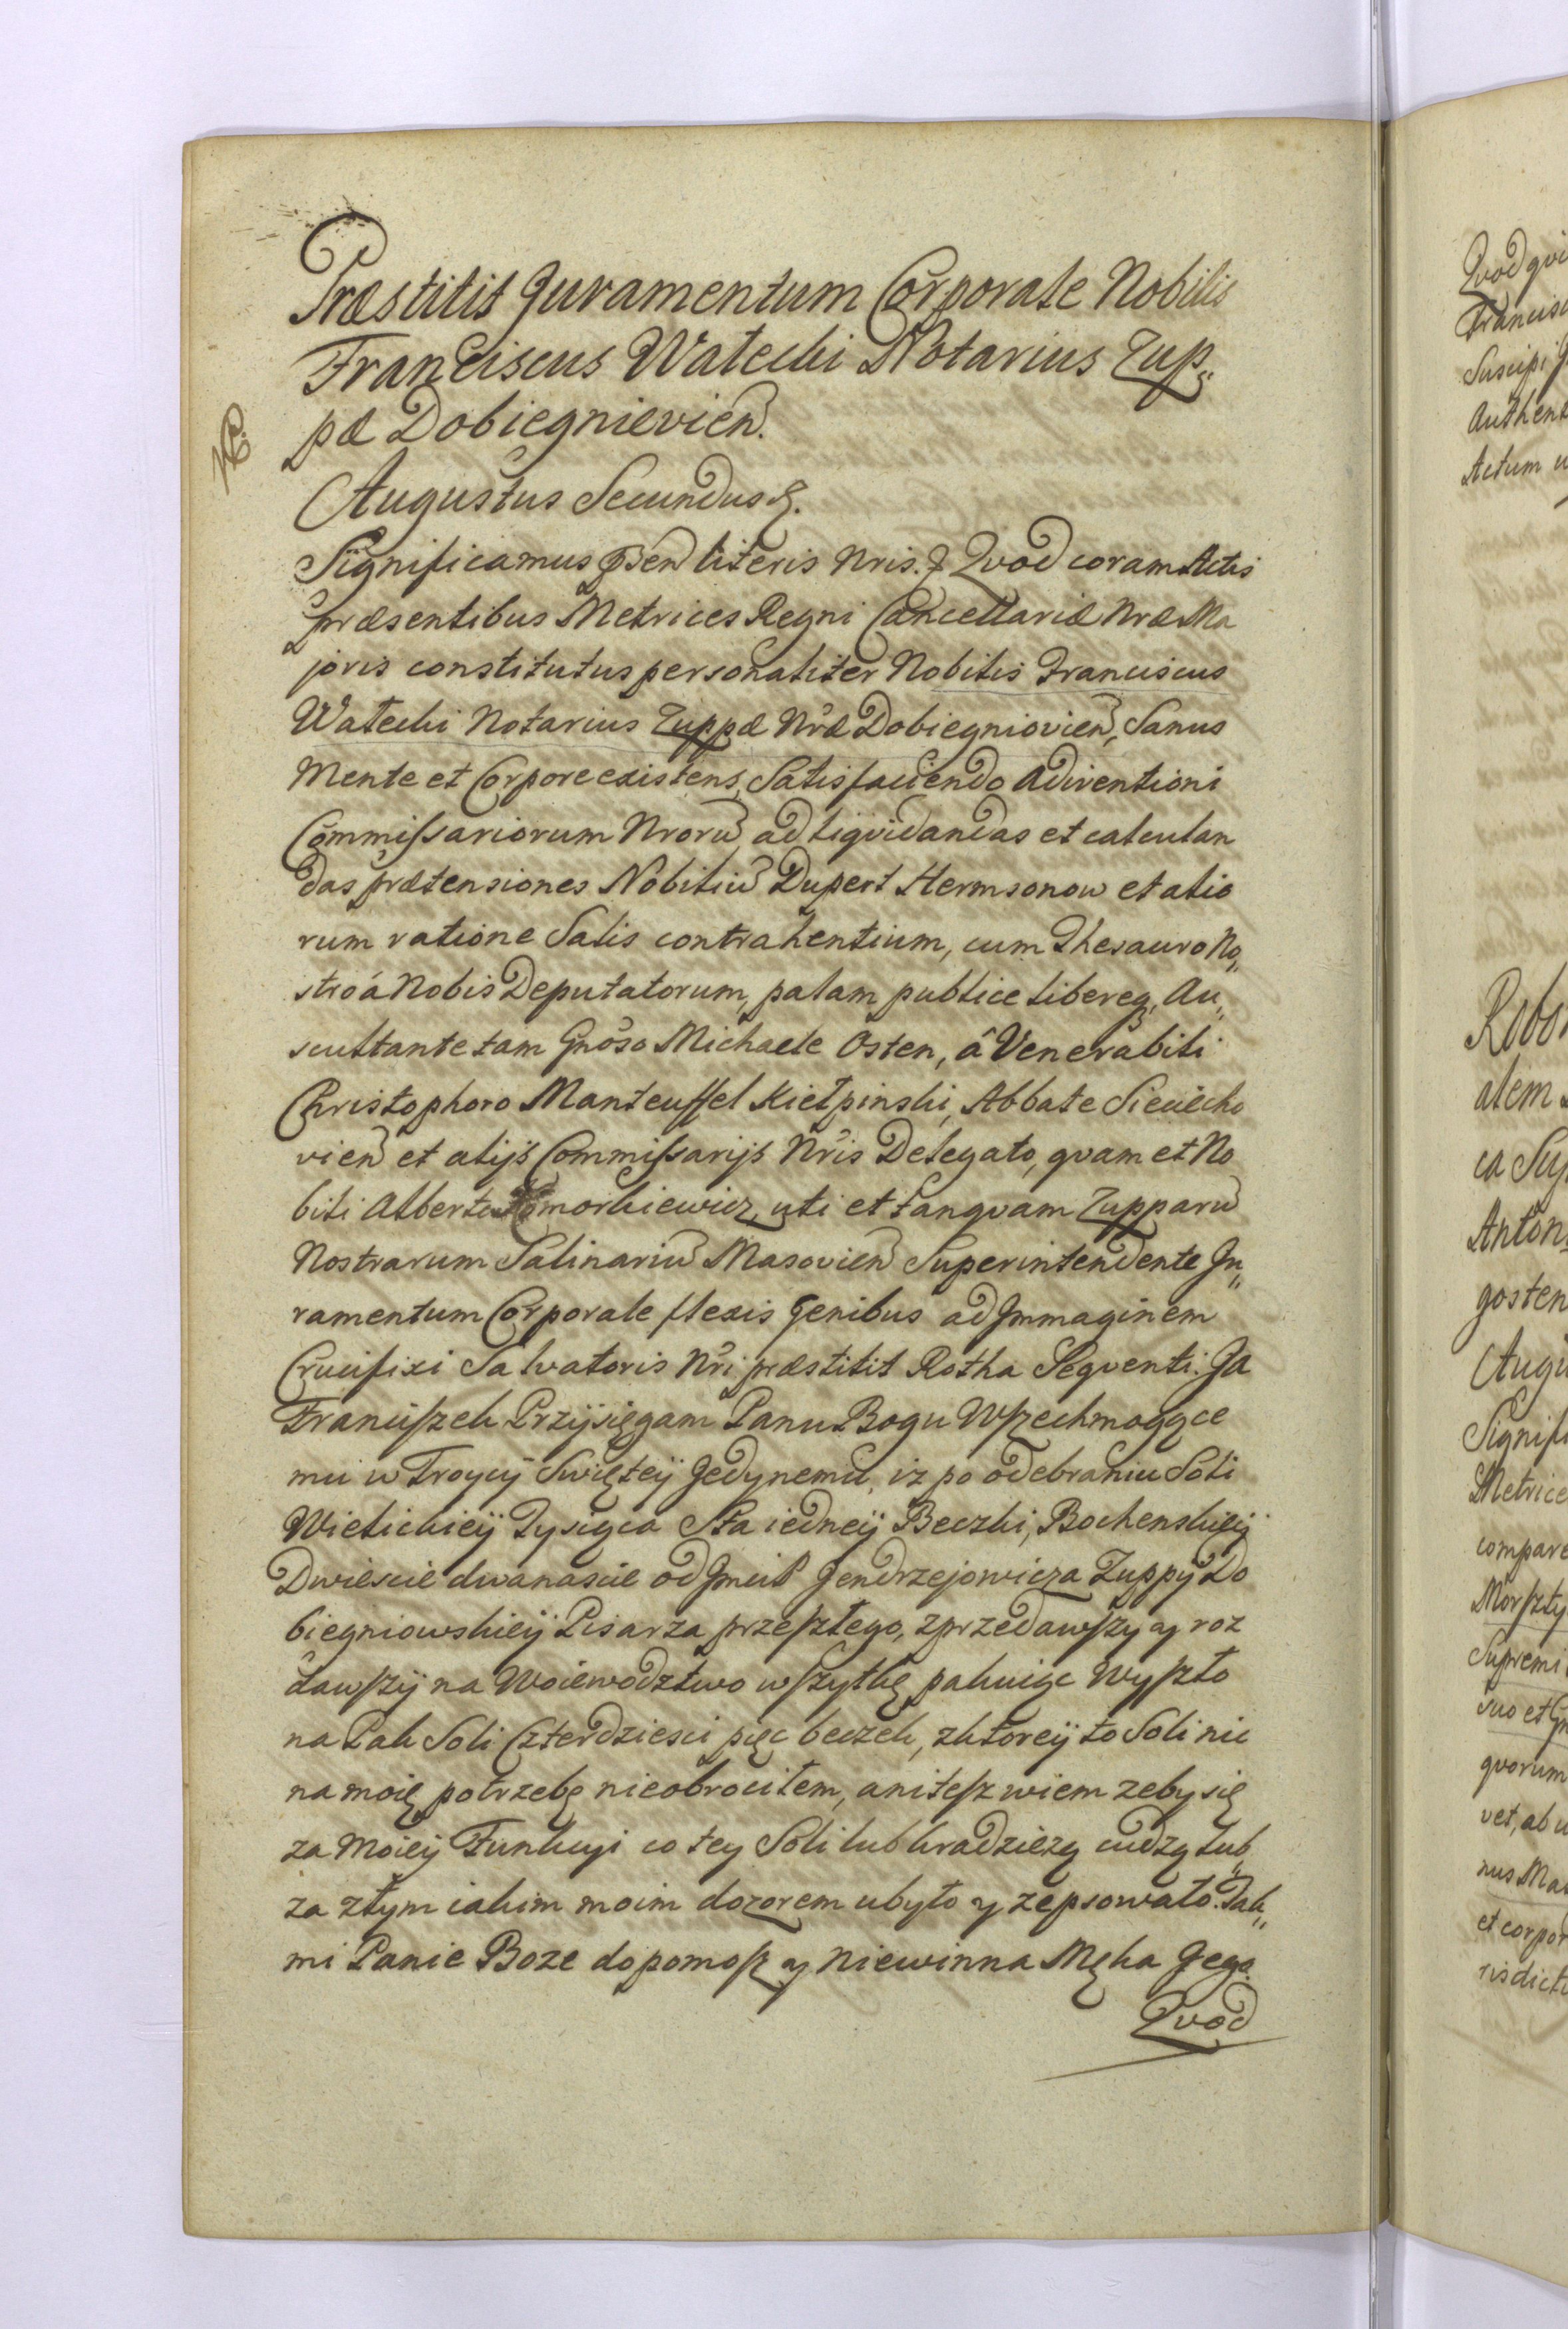 Præstitit Juramentum Corporale Nobilis
Franciscus Wałecki Notarius Zup„
pæ Dobiegnievien.
Augustus Secundus &.
Significamus pñsen literis Nris. & Qvod coram Actis
præsentibus Metrices Regni Cancellariæ Nræ Ma
joris constitutus personaliter Nobilis Franciscus
Wałecki Notarius Zuppæ Nræ Dobiegniovien, Sanus
Mente et Corpore existens, Satisfaciendo Adinventioni
Commissariorum Nroru ad liqvidandas et calculan
das prætensiones Nobiliu Dupert Hermsonow et alio
rum ratione Salis contrahentium, cum Thesauro No„
stro á Nobis Deputatorum, palam publice libereq, Au„
scultante tam Gnoso Michaele Osten, â Venerabili
Christophoro Manteuffel Kiełpinski, Abbate Sieciecho
vien et alijs Commissarijs Nris Delegato, qvam et No
bili Alberto Komorkiewicz, uti et tanqvam Zupparu
Nostrarum Salinariu Masovien Superintendente Ju„
ramentum Corporale flexis genibus ad Immaginem
Crucifixi Salvatoris Nri præstitit Rotha Seqventi. Ja
Franciszek Przysięgam Panu Bogu Wszechmogące
mu w Troycy Swiętey Jedynemu, iz po odebraniu Soli
Wielickiey Tysiąca Sta iedney Beczki, Bochenskiey
Dwiescie dwanascie od Jmci P Jendrzejowicza Zuppy Do
biegniowskiey Pisarza przeszłego, zprzedawszy y roz
dawszy na Woiewodztwo wszytkę pakuiąc Wyszło
na Pak Soli Czterdziesci pięc beczek, zktorey to Soli nic
na moię potrzebę nieobrociłem, aniteż wiem zeby się
za Moiey Funkcyi co tey Soli lub kradzieżą cudzą lub„
za złym iakim moim dozorem ubyło y zepsowało. Tak„
mi Panie Boze dopomosz y Niewinna Męka Jego.
Qvod